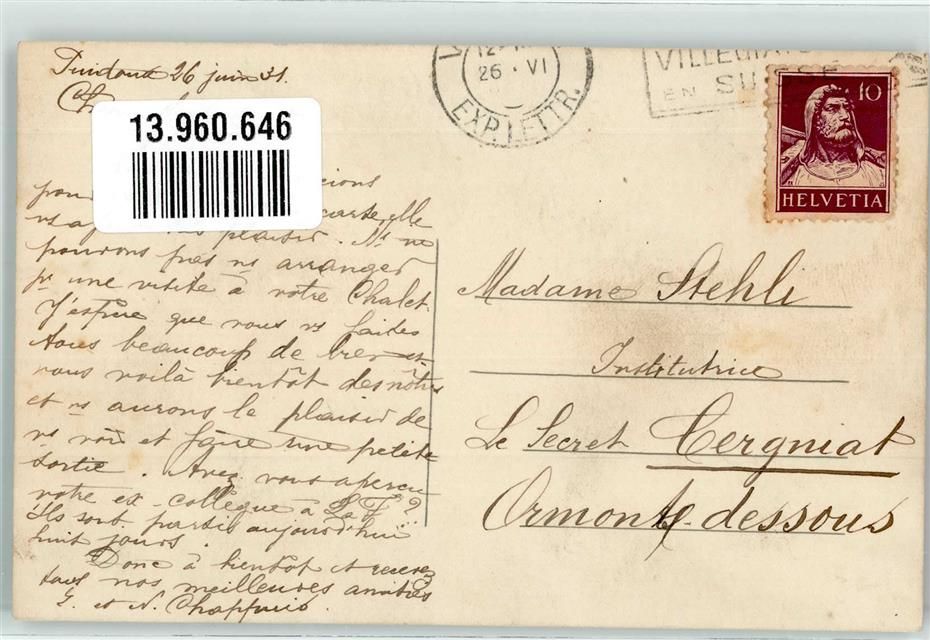 26 juin 31.
13.960.646
carte, elle
plaisir. Ns ne
pouvons pas ns arranger
pr une visite à votre Chalet.
J'espère que vous vs faites
tous beaucoup de bien et
vous voilà bientôt des nôtres
et ns aurons le plaisir de
vs voir et faire une petite
sortie. Avez vous aperçu
votre ex collègue à La F ?
Ils sont partis aujourd'hui
huit jours.
Donc à bientôt et recevez
tous nos meilleures amitiés
et N. Chappuis.
26 · VI
EXP. LETTR.
VILLEGIAT
EN SUISSE
10
HELVETIA
Madame Stehli
Institutrice
Le Secret Cergniat
Ormont-dessous